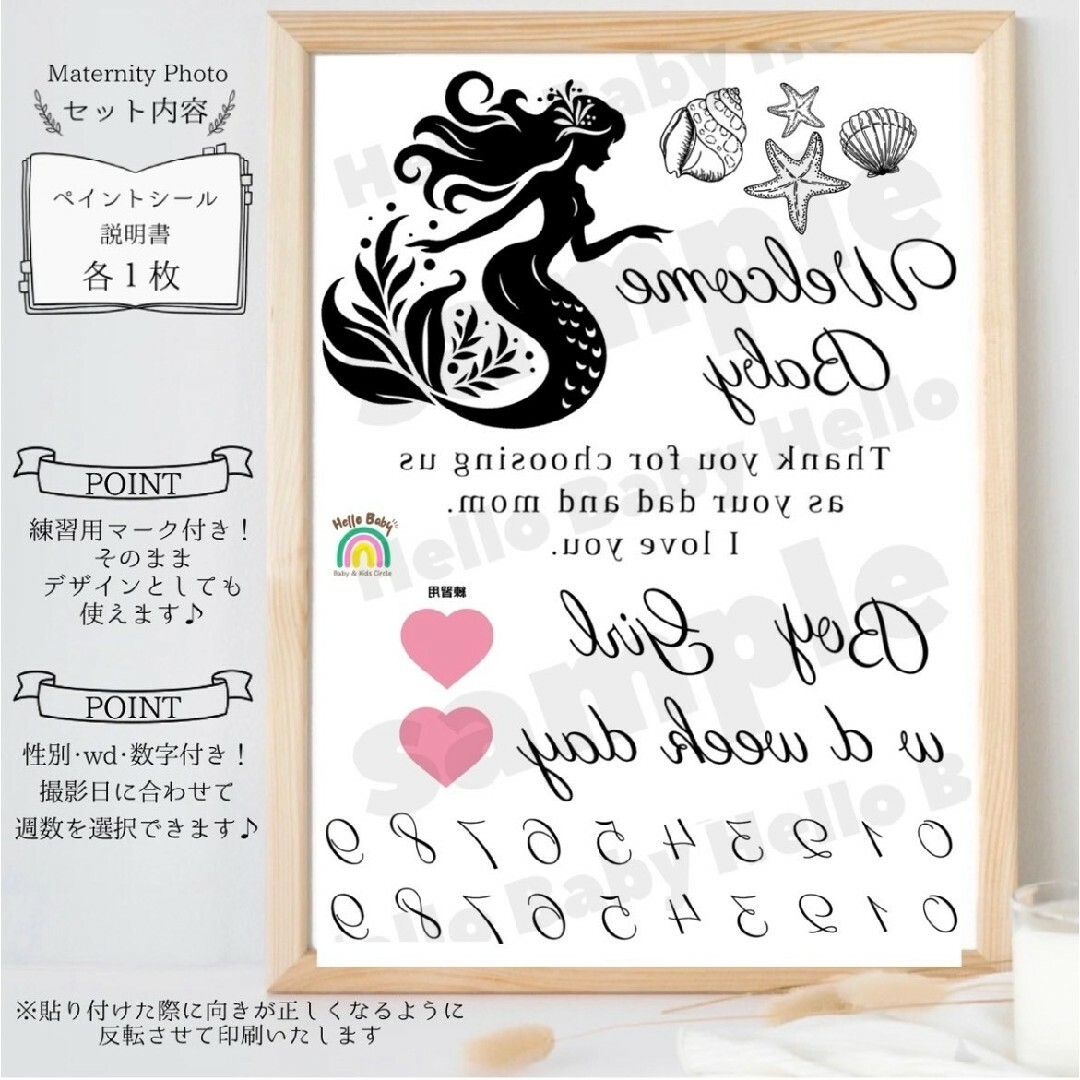 Maternity Photo
セット内容
ペイントシール
説明書
各1枚
POINT
練習用マーク付き!
そのまま
デザインとしても
使えます♪
POINT
性別･wd･数字付き!
撮影日に合わせて
週数を選択できます♪
※貼り付けた際に向きが正しくなるように
反転させて印刷いたします
Welcome
Baby
Thank you for choosing us
as your dad and mom.
I love you.
Hello Baby
Baby & Kids Circle
練習用
Boy Girl
w d week day
0 1 2 3 4 5 6 7 8 9
0 1 2 3 4 5 6 7 8 9
Hello Baby Hello
sample
Hello Baby Hello B
sample